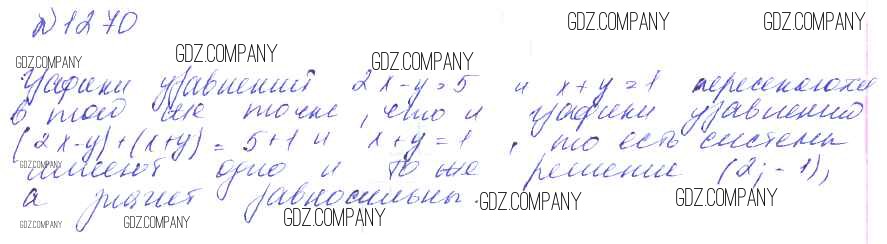 № 1270
GDZ.COMPANY GDZ.COMPANY
GDZ.COMPANY GDZ.COMPANY GDZ.COMPANY
Графики уравнений 2x-y=5 и x+y=1 пересекаются
в той же точке, что и графики уравнений
(2x-y)+(x+y)=5+1 и x+y=1, то есть системы
имеют одно и то же решение (2;-1),
а значит равносильны.
GDZ.COMPANY GDZ.COMPANY
GDZ.COMPANY GDZ.COMPANY GDZ.COMPANY